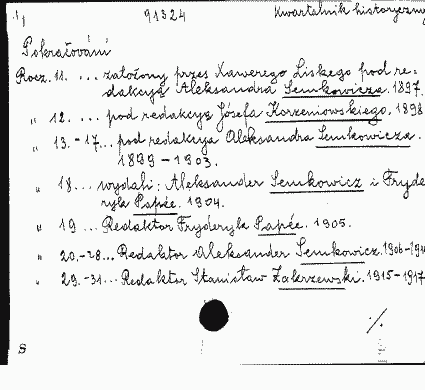 91324 Kwartalnik historyczny
Pokračování
Rocz. 11. ... założony przes Xawerego Liskego pod re-
dakcyą Aleksandra Semkowicza. 1897.
" 12. ... pod redakcyą Józefa Korzeniowskiego. 1898
" 13.-17... pod redakcya Aleksandra Semkowicza.
1899-1903.
" 18... wydali: Aleksander Semkowicz i Fryde
ryk Papée. 1904.
" 19 ... Redaktor Fryderyk Papée. 1905.
" 20.-28... Redaktor Aleksander Semkowicz. 1906-191
" 29.-31... Redaktor Stanisław Zakrzewski. 1915-1917
./.
S